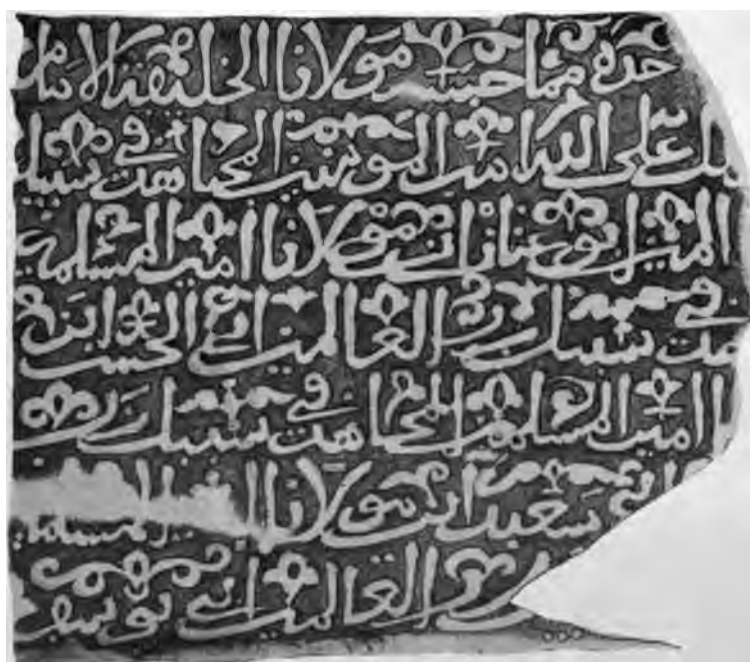 حده مما حبس مولانا الخليفة الامام
كل على الله امير المومنين المجاهد في سبيل
المين ابو عنان ابن مولانا امير المسلمين
هد في سبيل رب العالمين ابي الحسن ابن
ا امير المسلمين المجاهد في سبيل رب
ابي سعيد ابن مولانا المسلمين
رب العالمين ابي يوسف